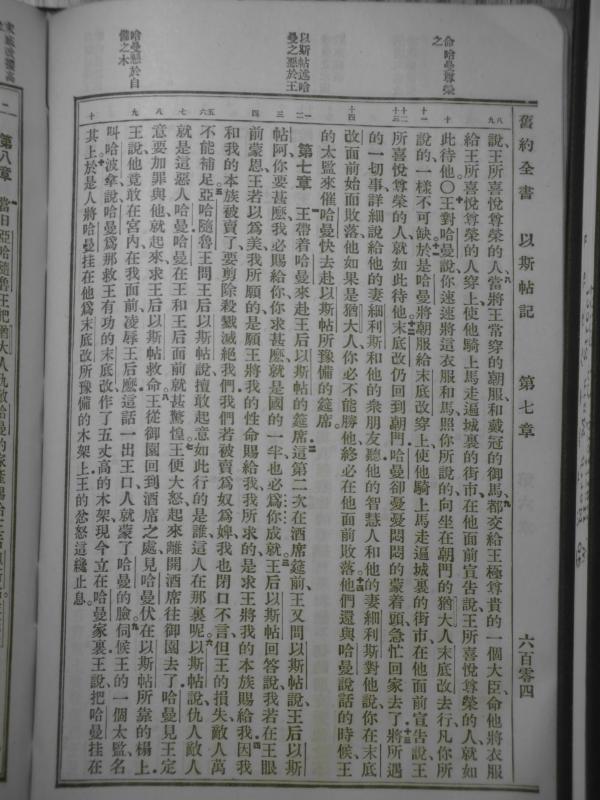 舊約全書 以斯帖記 第七章 六百零四
命哈曼尊榮
之
以斯帖述哈
曼之惡於王
哈曼懸於自
備之木
說王所喜悅尊榮的人當將王常穿的朝服和戴冠的御馬都交給王極尊貴的一個大臣命他將衣服
給王所喜悅尊榮的人穿上使他騎上馬走遍城裏的街市在他面前宣告說王所喜悅尊榮的人就如
此待他〇王對哈曼說你速速將這衣服和馬照你所說的向坐在朝門的猶大人末底改去行凡你所
說的一樣不可缺於是哈曼將朝服給末底改穿上使他騎上馬走遍城裏的街市在他面前宣告說王
所喜悅尊榮的人就如此待他末底改仍回到朝門哈曼卻憂憂悶悶的蒙着頭急忙回家去了將所遇
的一切事詳細說給他的妻細利斯和他的衆朋友聽他的智慧人和他的妻細利斯對他說你在末底
改面前始而敗落他如果是猶大人你必不能勝他終必在他面前敗落他們還與哈曼說話的時候王
的太監來催哈曼快去赴以斯帖所豫備的筵席
第七章 王帶着哈曼來赴王后以斯帖的筵席這第二次在酒席筵前王又問以斯帖說王后以斯
帖阿你要甚麼我必賜給你你求甚麼就是國的一半也必爲你成就王后以斯帖回答說我若在王眼
前蒙恩王若以爲美我所願的是願王將我的性命賜給我我所求的是求王將我的本族賜給我因我
和我的本族被賣了要剪除殺戮滅絕我們我們若被賣爲奴爲婢我也閉口不言但王的損失敵人萬
不能補足亞哈隨魯王問王后以斯帖說擅敢起意如此行的是誰這人在那裏呢以斯帖說仇人敵人
就是這惡人哈曼哈曼在王和王后面前就甚驚惶王便大怒起來離開酒席往御園去了哈曼見王定
意要加罪與他就起來求王后以斯帖救命王從御園回到酒席之處見哈曼伏在以斯帖所靠的榻上
王說他竟敢在宮內在我面前凌辱王后麼這話一出王口人就蒙了哈曼的臉伺候王的一個太監名
叫哈波拿說哈曼爲那救王有功的末底改作了五丈高的木架現今立在哈曼家裏王說把哈曼挂在
其上於是人將哈曼挂在他爲末底改所豫備的木架上王的忿怒這纔止息
第八章 當日亞哈隨魯王把猶大人仇敵哈曼的家產賜給